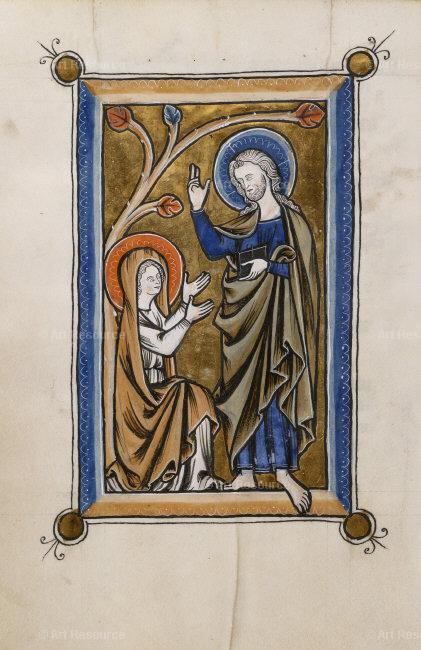 © Art Resource
© Art Resource
© Art Resource
© Art Resource
© Art Resource
© Art Resource